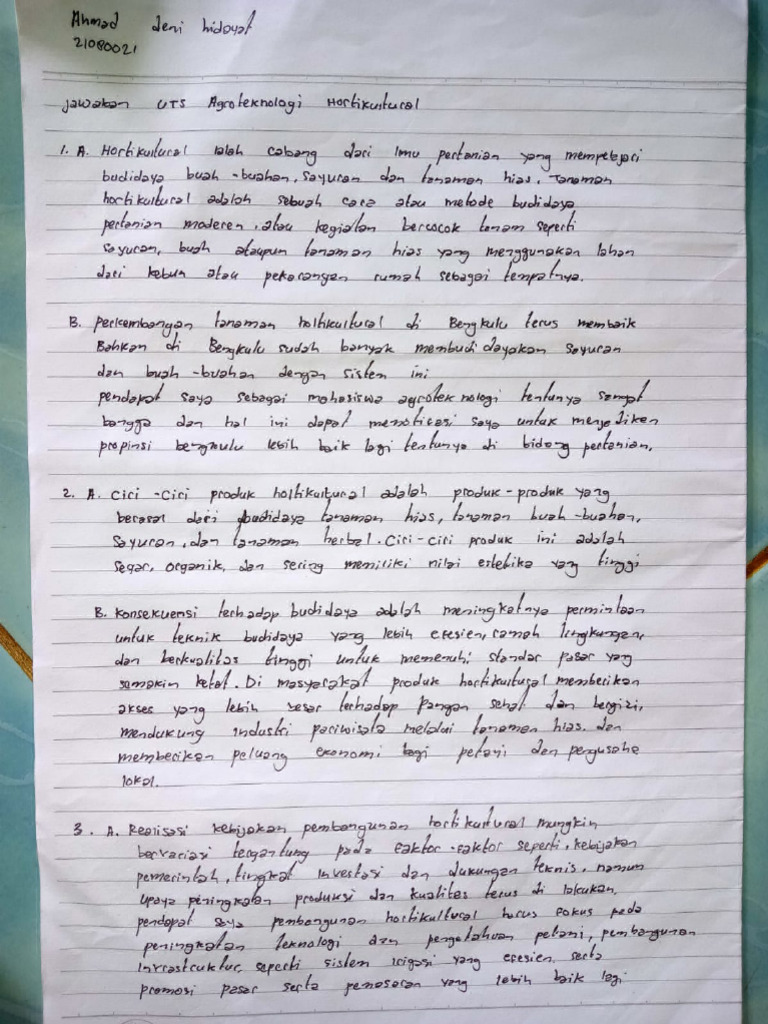 Ahmad deni hidayat
21080021
Jawaban UTS Agroteknologi Hortikultural
1. A. Hortikultural ialah cabang dari ilmu pertanian yang mempelajari
budidaya buah-buahan, sayuran dan tanaman hias. Tanaman
hortikultural adalah sebuah cara atau metode budidaya
pertanian moderen, atau kegiatan bercocok tanam seperti
sayuran, buah ataupun tanaman hias yang menggunakan lahan
dari kebun atau pekarangan rumah sebagai tempatnya.
B. Perkembangan tanaman holtikultural di Bengkulu terus membaik
Bahkan di Bengkulu sudah banyak membudidayakan sayuran
dan buah-buahan dengan sistem ini
pendapat saya sebagai mahasiswa agroteknologi tentunya sangat
bangga dan hal ini dapat memotivasi saya untuk menjadikan
propinsi bengkulu lebih baik lagi tentunya di bidang pertanian.
2. A. Ciri-Ciri produk holtikultural adalah produk-produk yang
berasal dari budidaya tanaman hias, tanaman buah-buahan,
sayuran, dan tanaman herbal. Ciri-ciri produk ini adalah
segar, organik, dan sering memiliki nilai estetika yang tinggi
B. Konsekuensi terhadap budidaya adalah meningkatnya permintaan
untuk teknik budidaya yang lebih efesien, ramah lingkungan,
dan berkualitas tinggi untuk memenuhi standar pasar yang
semakin ketat. Di masyarakat produk hortikultural memberikan
akses yang lebih besar terhadap pangan sehat dan bergizi,
mendukung industri pariwisata melalui tanaman hias. dan
memberikan peluang ekonomi bagi petani dan pengusaha
lokal.
3. A. Realisasi kebijakan pembangunan hortikultural mungkin
bervariasi tergantung pada faktor-faktor seperti, kebijakan
pemerintah, tingkat investasi dan dukungan teknis, namun
upaya peningkatan produksi dan kualitas terus di lakukan,
pendapat saya pembangunan hortikultural harus fokus pada
peningkatan teknologi dan pengetahuan petani, pembangunan
infrastruktur, seperti sistem irigasi yang efesien, serta
promosi pasar serta pemasaran yang lebih baik lagi